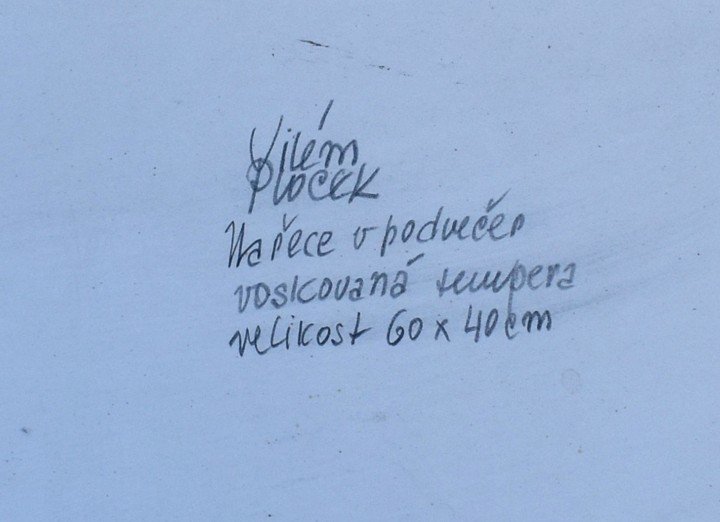 Vilém
Plocek
Na řece v podvečer
voskovaná tempera
velikost 60 x 40 cm